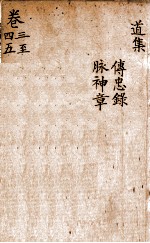 道集
傳忠錄
脉神章
卷三至
四五